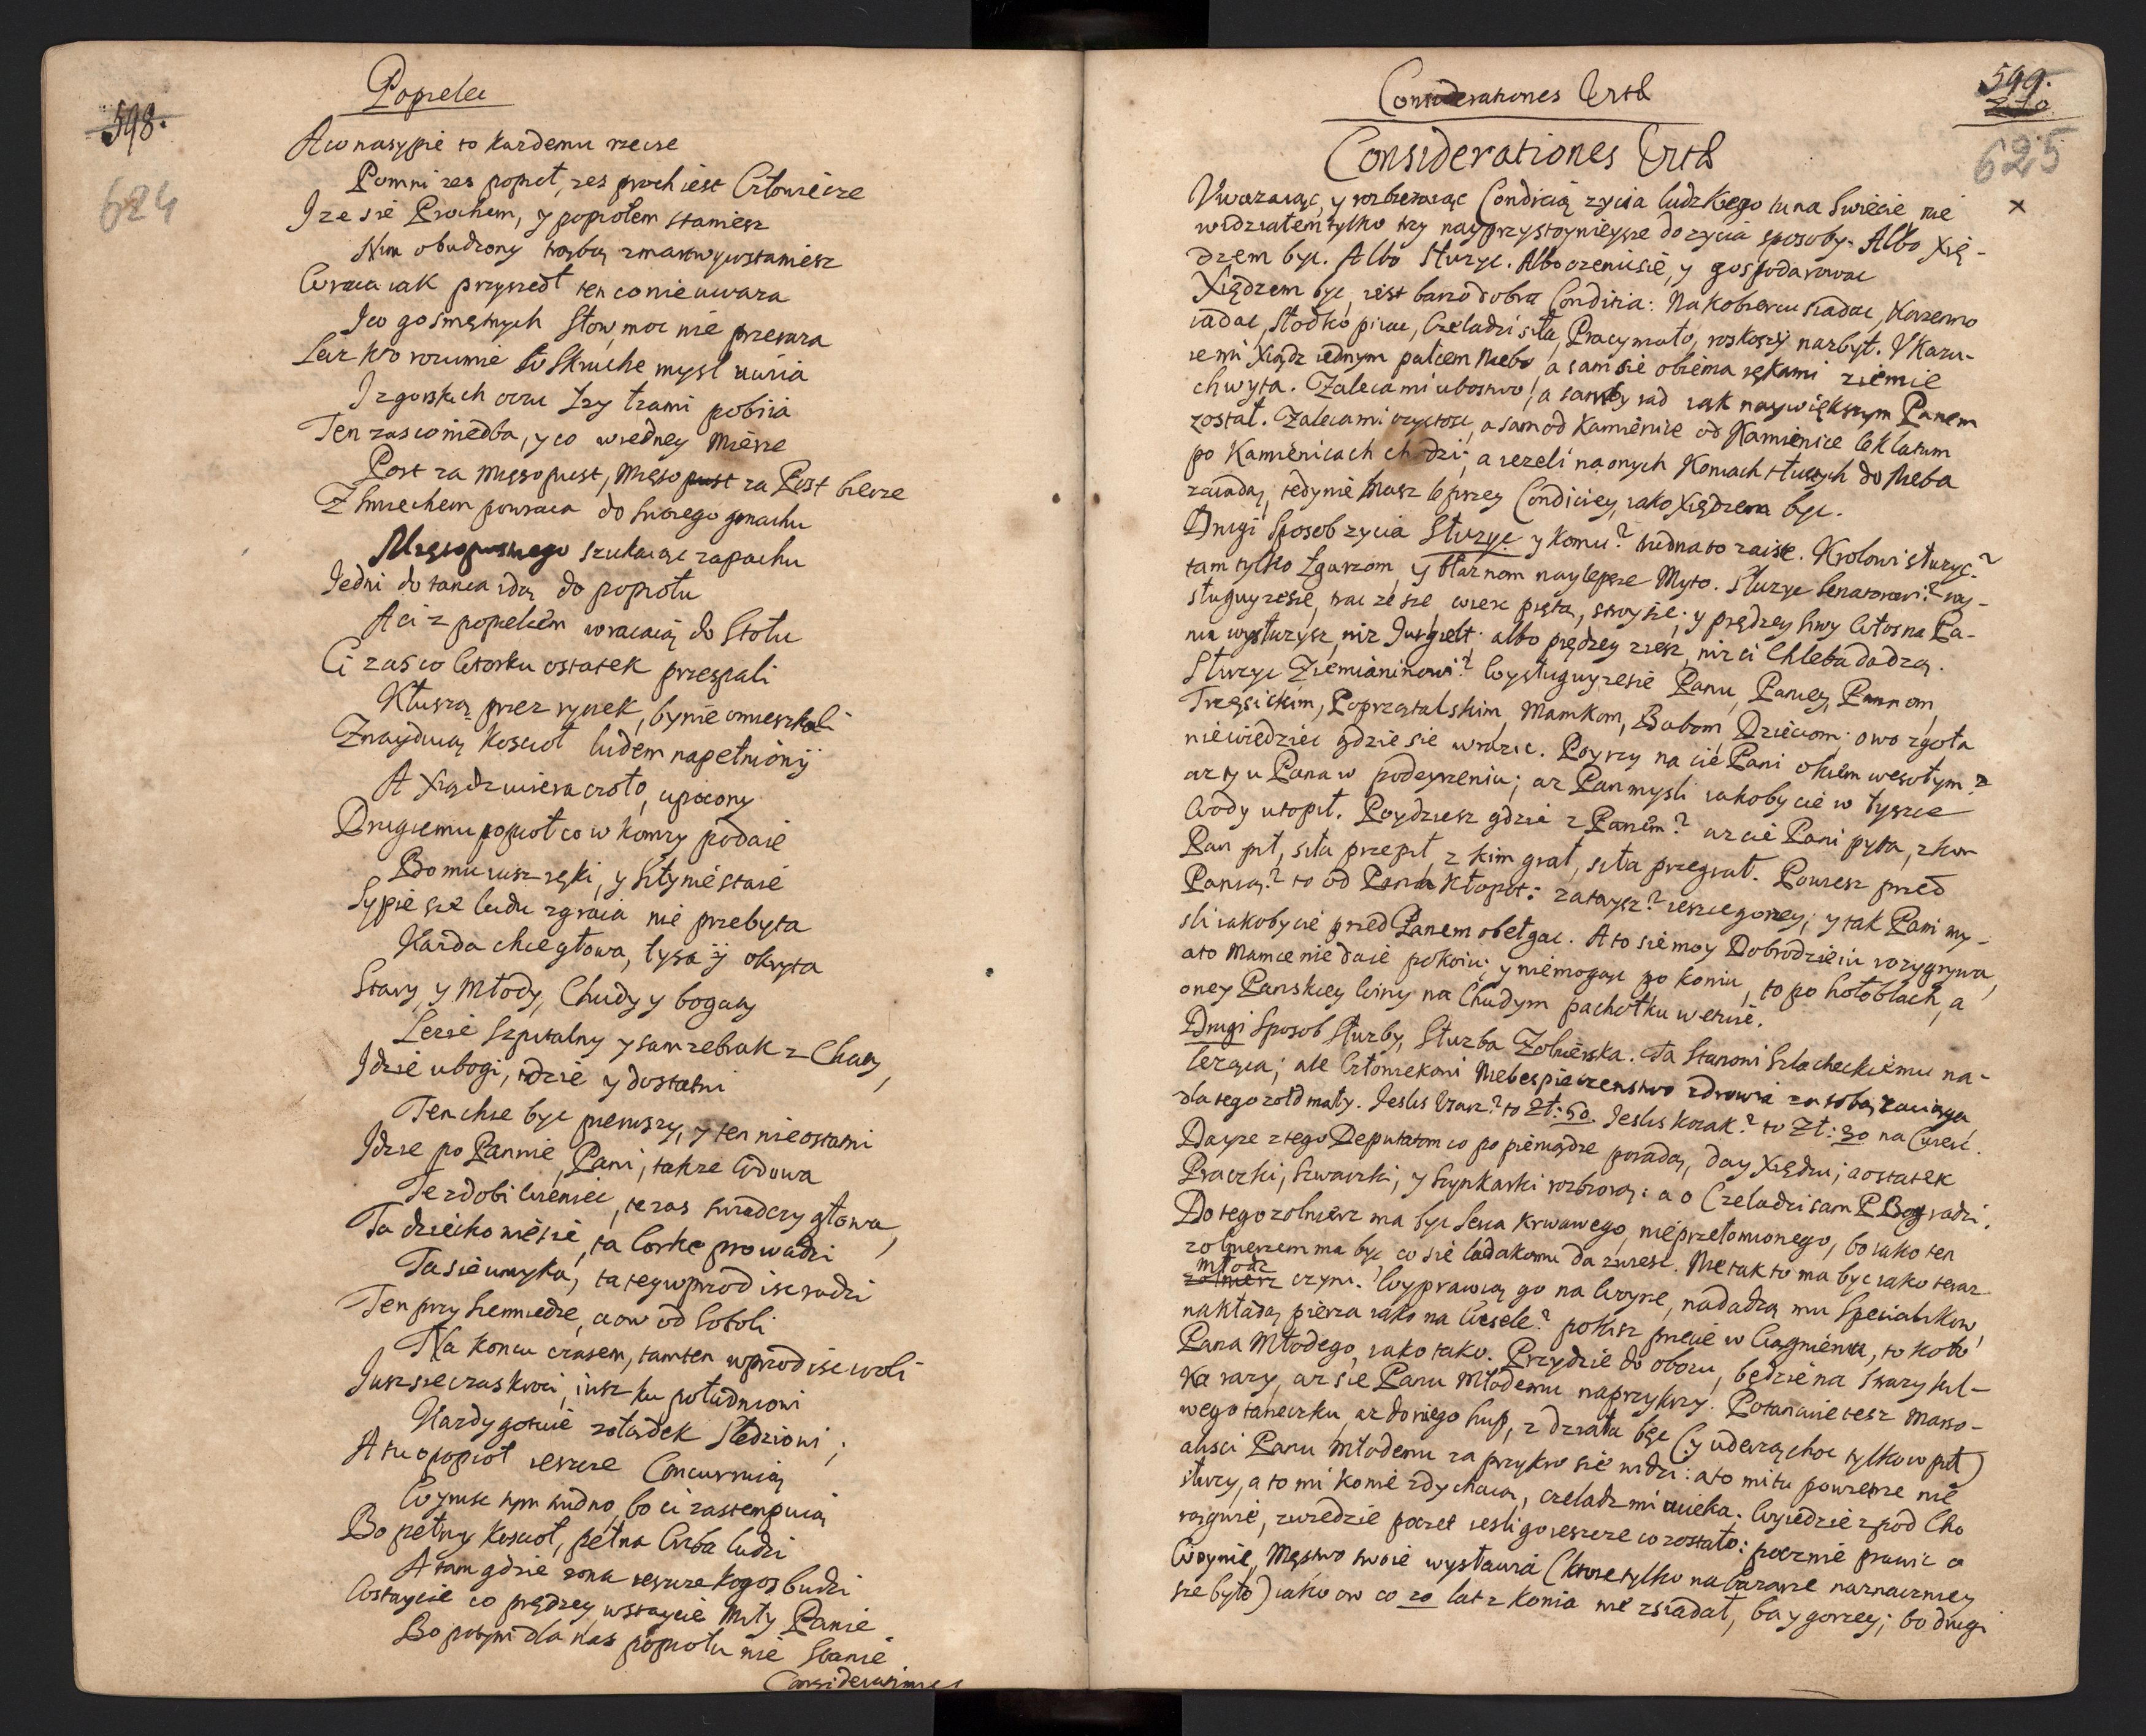 598.
624
Popielec
A w nasypie to kazdemu rzecze
Pomni zes popioł, zes proch iest Człowiecze
I ze sie Prochem, y popiołem staniesz
Nim obudzony trąbą zmartwywstaniesz
Wraca iak przyszedł ten co nie uwaza
I co go smętnych słow moc nie przeraza
Lecz kto rozumie w skruche mysl uuiia
I z gorskich oczu łzy łzami pobiia
Ten zas co niedba, y co w iedney mierze
Post za Mięsopust, Mięsopust za Post bierze
Z smiechem powraca do swoiego gmachu
Mięsopustnego szukaiąc zapachu
Iedni do tanca idą do popiołu
A ci z popielem wracaią do Stołu
Ci zas co Wtorku ostatek przespali
Kłuszą przez rynek, by nie omieszkali
Znayduią Koscioł ludem napełniony
A Xiądz uciera czoło, upocony
Drugiemu popioł co w komzy podaie
Bo mu iusz ręki, y siły nie staie
Sypie sie ludu zgraia nie przebyta
Kazda chce głowa, łysa y okryta
Stary y Młody, Chudy y bogaty
Lezie szpitalny y sam zebrak z Chaty,
Idzie ubogi, idzie y dostatni
Ten chce byc pierwszy, y ten nie ostatni
Idzie po Pannie, Pani, takze Wdowa
Te zdobi Wieniec, te zas swiadczy głowa,
Ta dziecko niesie, ta Corke prowadzi
Ta sie umyka, ta tey wprzod isc radzi
Ten przy Niemiedze, a ow od Soboli
Na koncu czasem, tamten wprzod isc woli
Iusz sie czas kroci, iusz ku południowi
Kazdy gotuie zołądek Sledziowi;
A tu o popioł ieszcze Concurruią
Wynisc tym trudno, bo ci zastempuią
Bo pełny Koscioł, pełna Cizba ludzi
A tam gdzie zona ieszcze kogos budzi
Wstaycie co prędzey wstaycie Miły Panie
Bo potym dla nas popiołu nie Stanie
Considerationes
599.
625
Considerationes
Considerationes
Uwazaiąc, y rozbieraiąc Condicią zycia ludzkiego tu na swiecie nie ×
widziałem tylko trzy nayprzystoynieysze do zycia sposoby. Albo Xię-
dzem byc. Albo Słuzyc. Albo ozenic sie, y gospodarowac
Xiędzem byc iest barzo dobra Conditia: Na kobiercu siadac, Kazenno
iadac, Słodko piiac, Czeladzi siła, Pracy mało, roskoszy nazbyt. Ukazu-
ie mi Xiądz iednym palcem Niebo, a sam sie obiema rękami ziemie
chwyta. Zaleca mi ubostwo, a samby rad iak naywiększym Panem
został. Zaleca mi czystosc, a sam od Kamienice od Kamienice
po Kamienicach chodzi; a iezeli na onych Koniach tłustych do Nieba
zaiadą, tedy nie masz lepszey Condiciey, iako Xiędzem byc.
Drugi Sposob zycia Słuzyc y komu? trudna to zaiste. Krolowi słuzyc?
tam tylko Łgarzom, y błaznom naylepsze Myto. Słuzyc Senatorowi? wy-
sługuyze sie, trac ze sie, wierc piętą, stroysie; y prędzey siwy Włos na Pa-
nu wysłuzysz, niz Jurgielt: albo prędzey zięsz, niz ci Chleba dadzą.
Słuzyc Ziemianinowi? Wysługuyzesie Panu, Paniey, Pannom,
Trzęsickim, Poprzątalskim, Mamkom, Babom, Dzieciom; owo zgoła
niewiedziec gdzie sie wrazic. Poyrzy na cie Pani okiem wesołym?
az ty u Pana w podeyrzeniu; az Pan mysli iakoby cie w łyszce
Wody utopił. Poydziesz gdzie z Panem? az cie Pani pyta, z kim
Pan pił, siła przepił, z kim grał, siła przegrał. Powiesz przed
Panią? to od Pana kłopot: zataysz? ieszcze gorzey; y tak Pani my-
sli iakoby cie przed Panem obełgac. A to sie moy Dobrodzieiu rozgrywa,
a to Mamce nie daie pokoiu; y niemogąc po koniu, to po hołoblach, a
oney Panskiey Winy na Chudym pachołku wetuie.
Drugi Sposob Słuzby, Słuzba Zołnierska. Ta Stanowi Szlacheckiemu na-
lezącą; ale Człowiekowi Niebespieczenstwo zdrowia za sobą zaciąga
dla tego zołd mały. Jeslis Usarz? to Zł: 50. Jeslis kozak? to Zł: 30 na Cwierć.
Dayze z tego Deputatom co po pieniądze poiadą, day Xiędzu; a ostatek
Praczki, Szwaczki, y Szynkarki rozbiorą: a o Czeladzi sam P Bog radzi.
Do tego zołnierz ma byc Serca krwawego, nieprzełomionego, bo iako ten
zołnierzem ma byc co sie ladakomu da zwiesc. Nie tak to ma byc iako teraz
młodz
zołnierz czyni. Wyprawią go na Woyne, nadadzą mu Specialikow,
nakładą pierza iako na Wesele? pokisz precie w Ciągnieniu, to koło
Pana Młodego, iako tako. Przydzie do obozu, będzie na Strazy kil-
ka razy, az sie Panu Młodemu naprzykrzy. Potancuie tesz Marso-
wego taneczku, az do niego hup, z działa bęc (y uderzą choc tylko w pił)
alisci Panu Młodemu zaprzykro sie widzi: a to mi tu powietrze nie
słuzy, a to mi konie zdychaią, czeladz mi ucieka. Wyiedzie z pod Cho
rągwie, zwiedzie poczet iesli go ieszcze co zostało: pocznie prawic o
Woynie, Męstwo swoie wystawia (ktore tylko nabarzane naznaczniey
sze było) iako ow co 20 lat z konia nie zsiadał, ba y gorzey; bo drugi